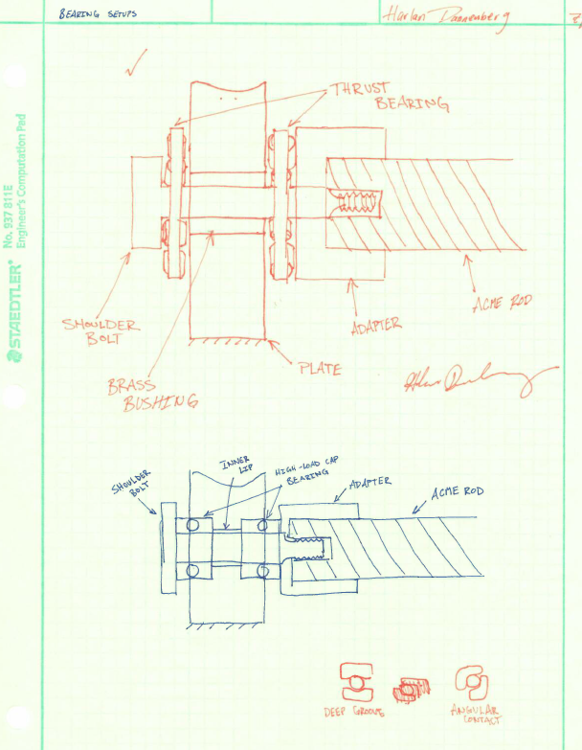 BEARING SETUPS
Harlan Dannenberg
THRUST
BEARING
SHOULDER
BOLT
BRASS
BUSHING
PLATE
ADAPTER
ACME ROD
SHOULDER
BOLT
INNER
LIP
HIGH-LOAD CAP
BEARING
ADAPTER
ACME ROD
DEEP GROOVE
ANGULAR
CONTACT
STAEDTLER®
No. 937 811E
Engineer's Computation Pad